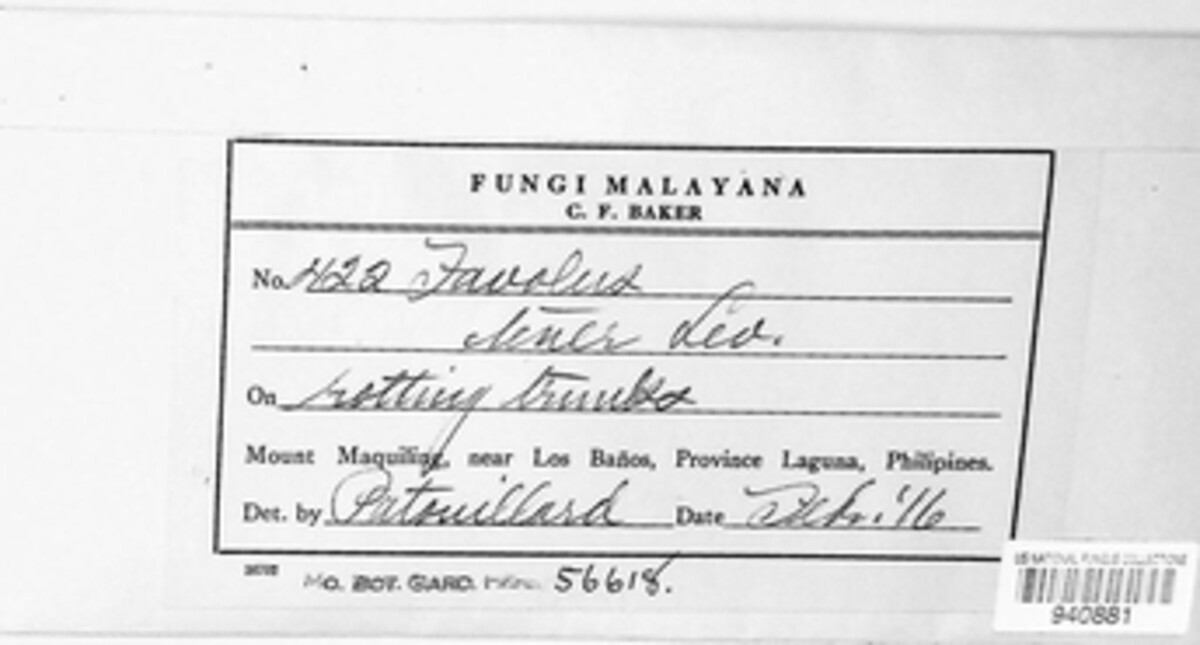 FUNGI MALAYANA
C. F. BAKER
No. 422 Favolus
tener Lev.
On rotting trunks
Mount Maquiling, near Los Baños, Province Laguna, Philipines.
Det. by Patouillard Date Feb. '16
MO. BOT. GARD. 56618.
US NATIONAL FUNGUS COLLECTIONS
940881